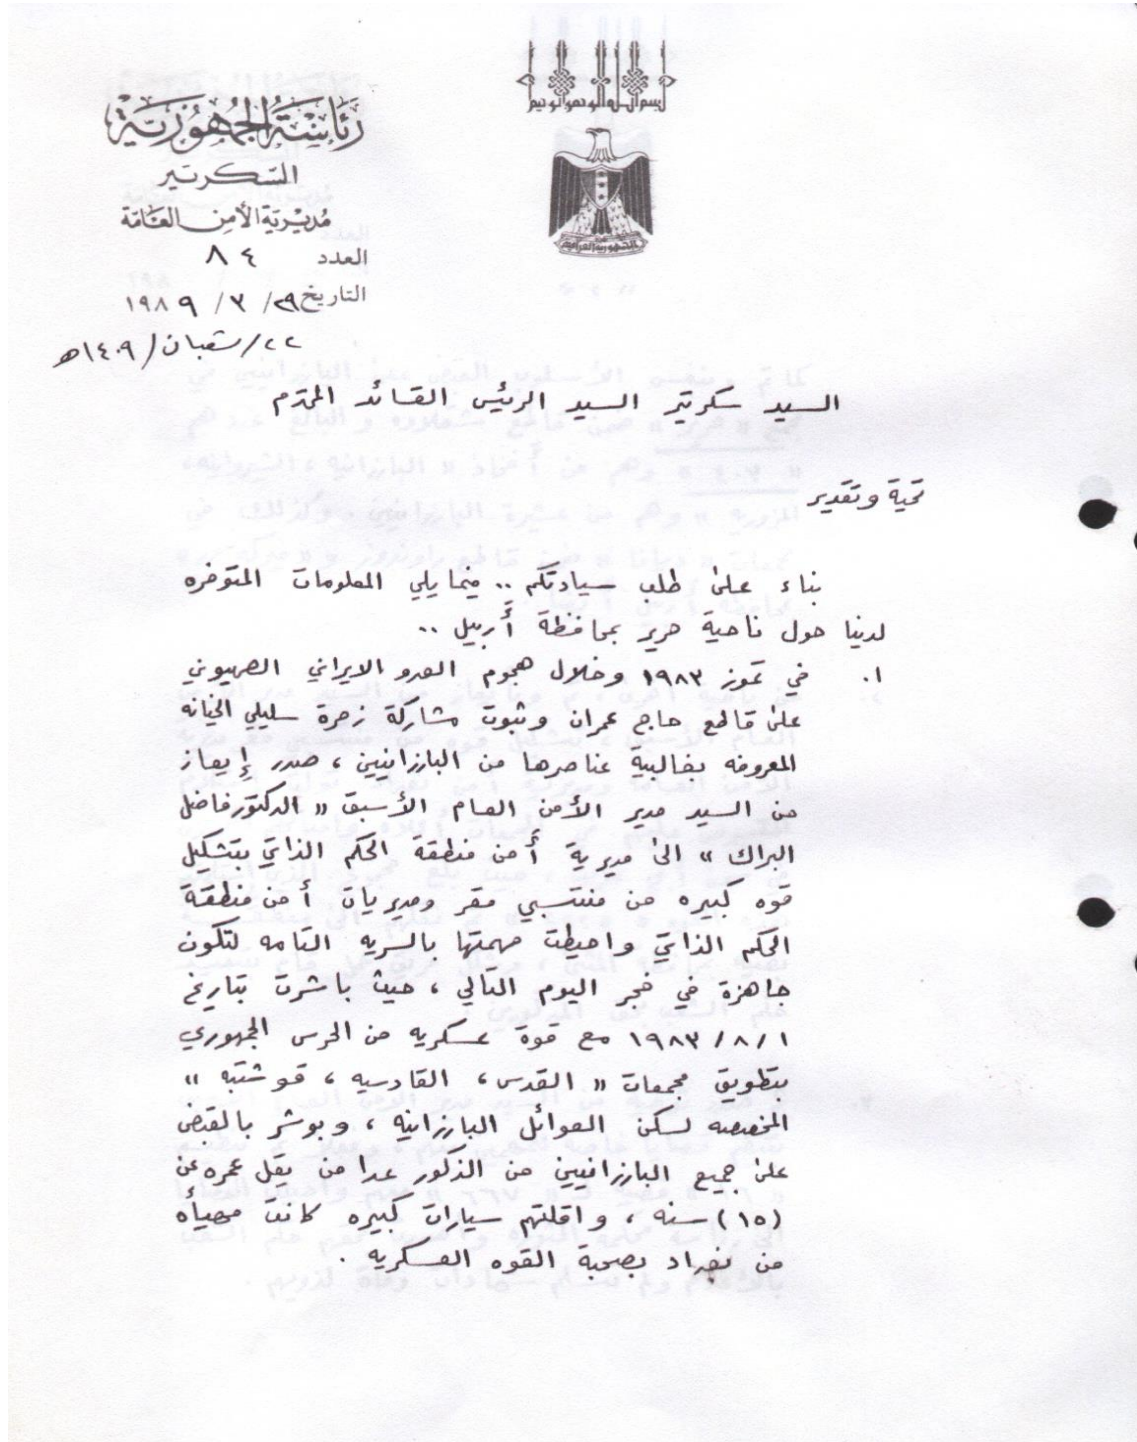 بسم الله الرحمن الرحيم
رئاسة الجمهورية
السكرتير
مديرية الأمن العامة
العدد ٨٤
التاريخ ٢٩/ ٣ / ١٩٨٩
٢٢/ شعبان / ١٤٠٩هـ
الجمهورية العراقية
السيد سكرتير السيد الرئيس القائد المحترم
تحية وتقدير
بناء على طلب سيادتكم .. فيما يلي المعلومات المتوفره
لدينا حول ناحية حرير بمحافظة أربيل ..
١. في تموز ١٩٨٣ وخلال هجوم العدو الايراني الصهيوني
على قاطع حاج عمران وثبوت مشاركة زمرة سليلي الخيانه
المعروفه بغالبية عناصرها من البارزانيين ، صدر إيعاز
من السيد مدير الأمن العام الأسبق « الدكتور فاضل
البراك » الى مديرية أمن منطقة الحكم الذاتي بتشكيل
قوه كبيره من منتسبي مقر ومديريات أمن منطقة
الحكم الذاتي واحيطت مهمتها بالسريه التامه لتكون
جاهزة في فجر اليوم التالي ، حيث باشرت بتاريخ
١ / ٨ / ١٩٨٣ مع قوة عسكريه من الحرس الجمهوري
بتطويق مجمعات « القدس ، القادسيه ، قوشتبه »
المخصصه لسكن العوائل البارزانيه ، وبوشر بالقبض
على جميع البارزانيين من الذكور عدا من يقل عمره عن
(١٥) سنه ، واقلتهم سيارات كبيره كانت مهيأه
من بغداد بصحبة القوه العسكريه .